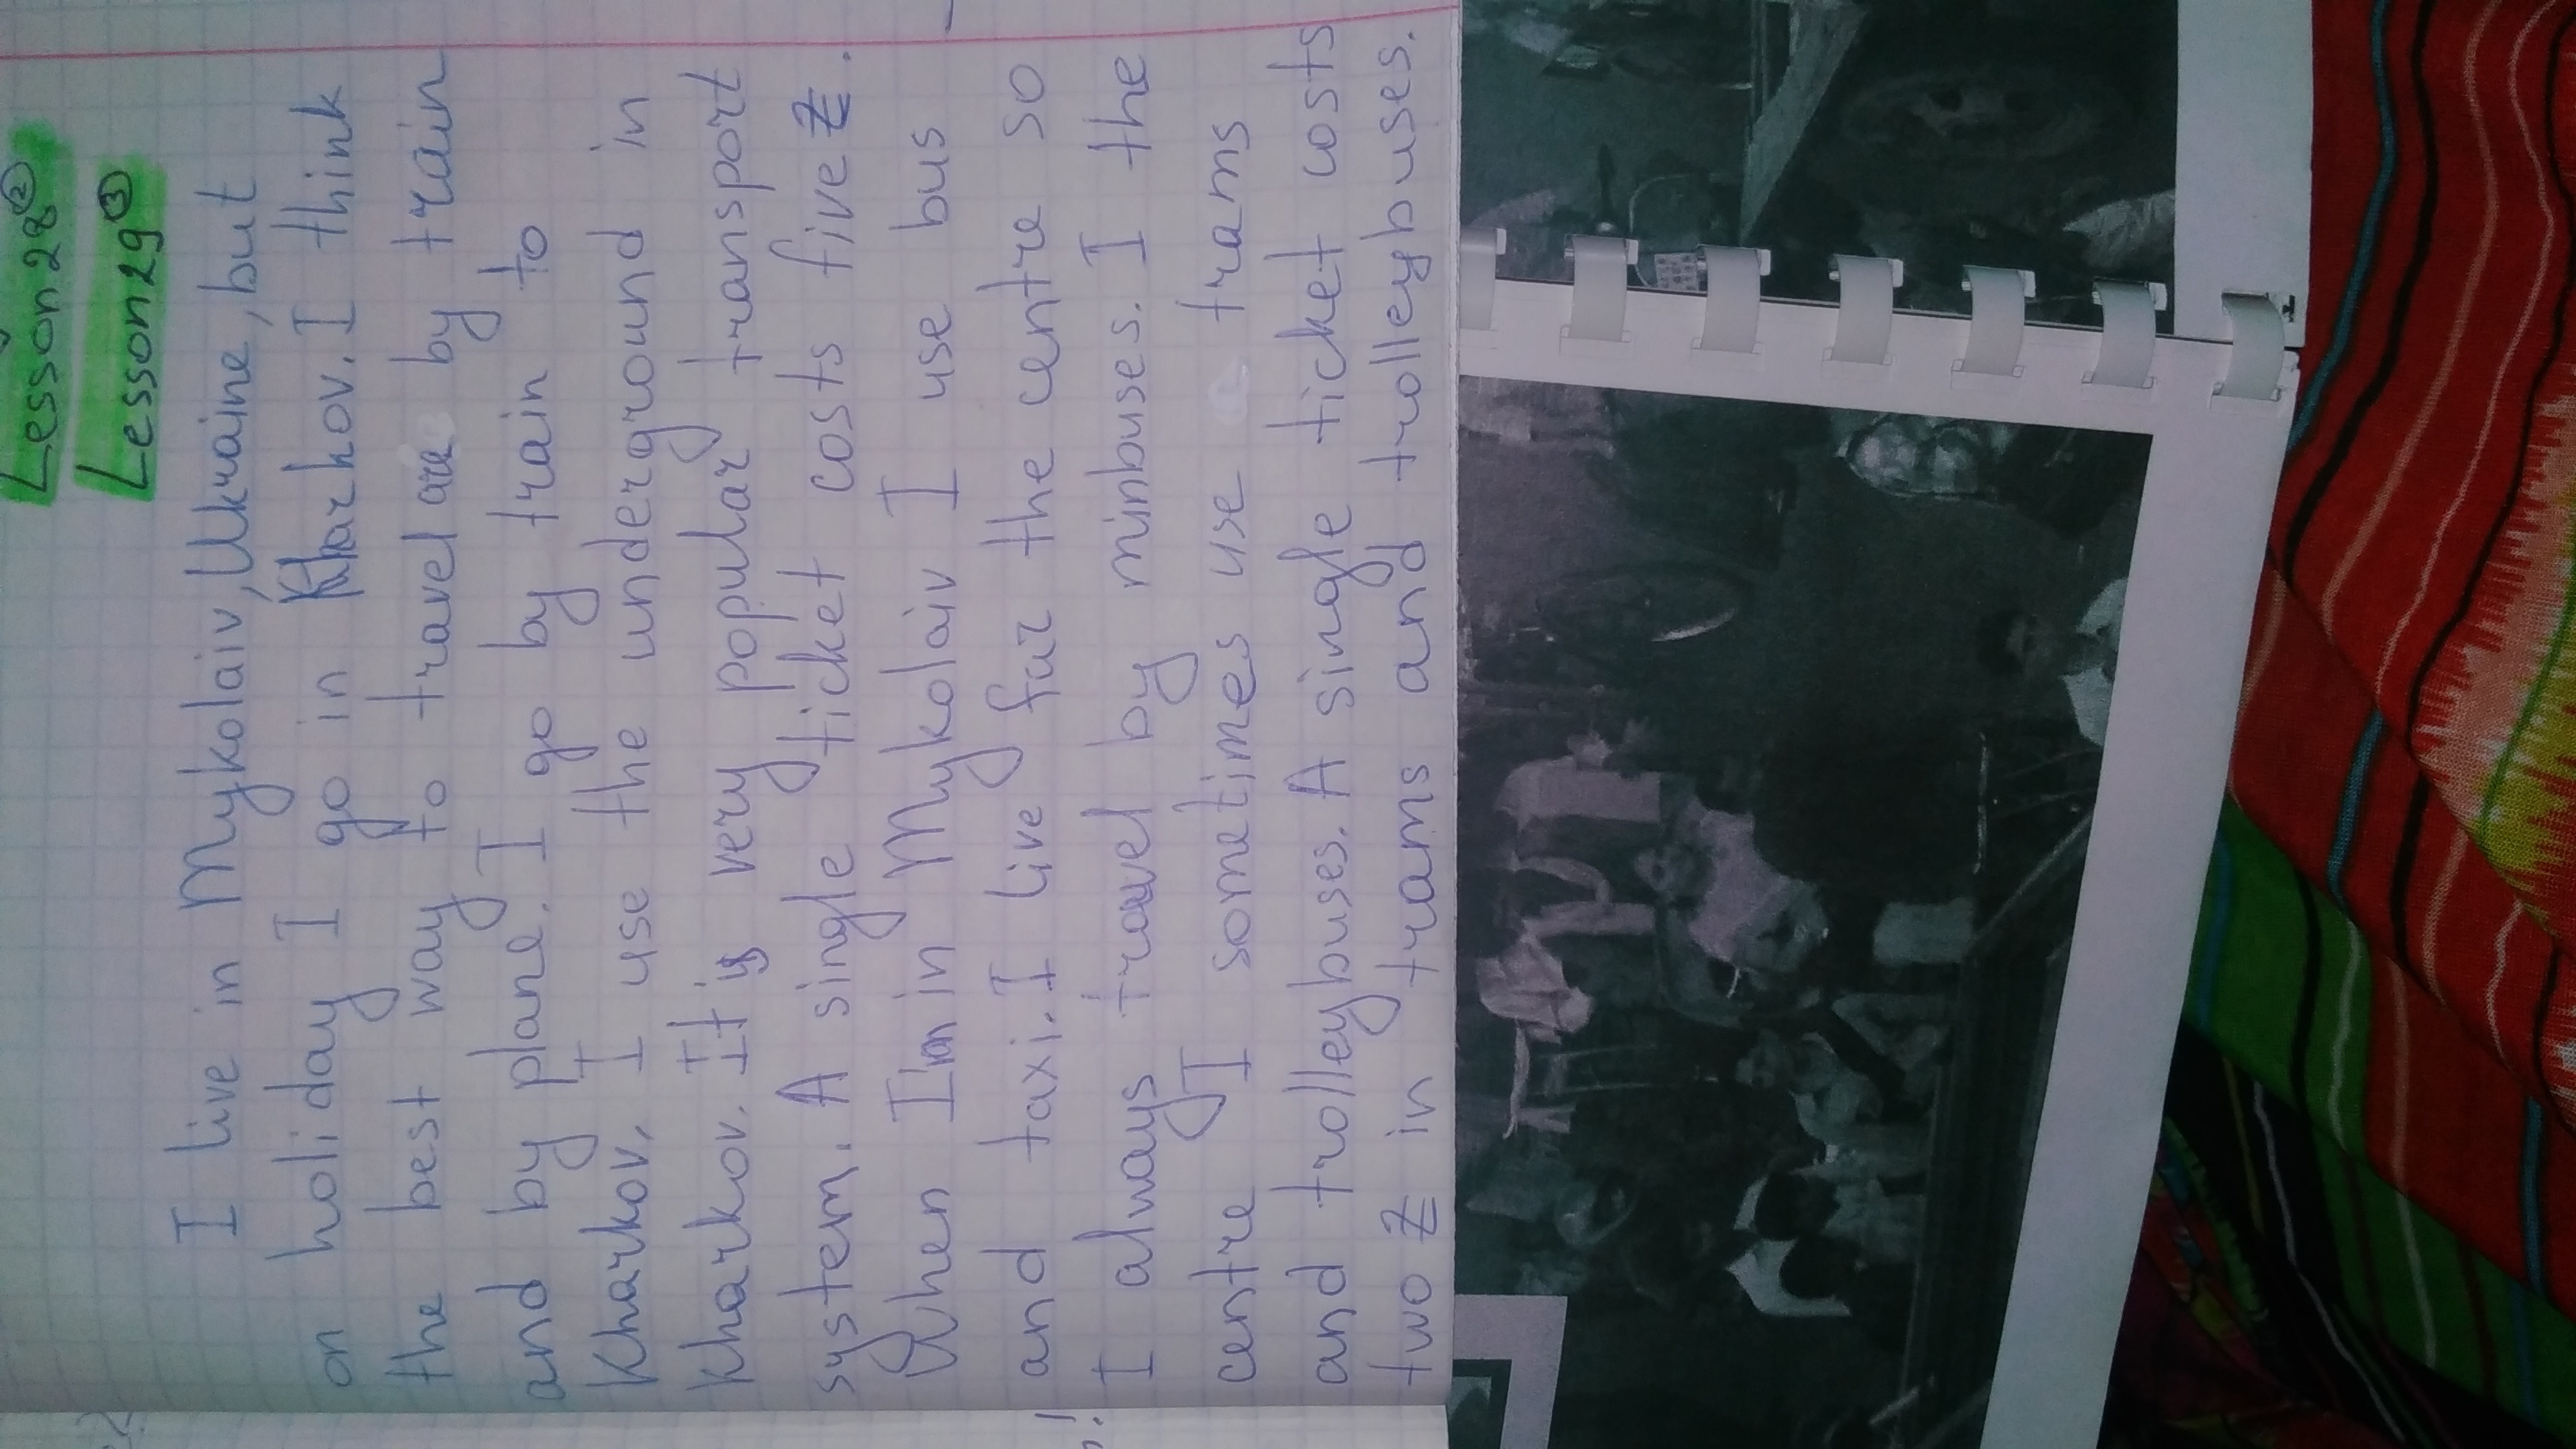 Lesson 28②
Lesson 29③
I live in Mykolaiv, Ukraine, but
on holiday I go in Kharkov. I think
the best way to travel are by train
and by plane. I go by train to
Kharkov. I use the underground in
Kharkov. It is very popular transport
system. A single ticket costs five ₴.
When I'm in Mykolaiv I use bus
and taxi. I live far the centre so
I always travel by minbuses. I the
centre I sometimes use trams
and trolleybuses. A single ticket costs
two ₴ in trams and trolleybuses.